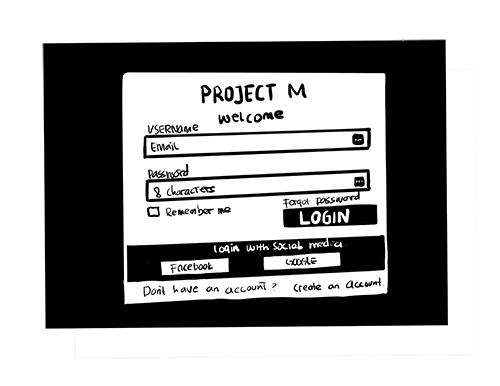 PROJECT M
Welcome
USERName
EMAIL
Password
8 characters
Remember me
Forgot password
LOGIN
Login with Social media
Facebook
GOOGLE
Dont have an account? Create an account.